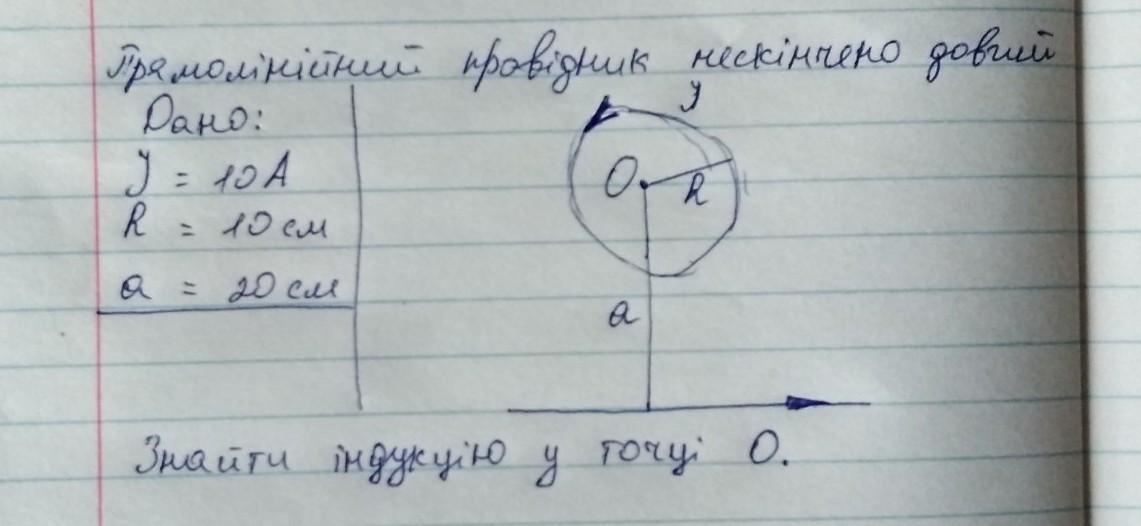 Прямолінійний провідник нескінчено довгий
Дано:
J = 10 А
R = 10 см
a = 20 см
J
O
R
a
Знайти індукцію у точці О.